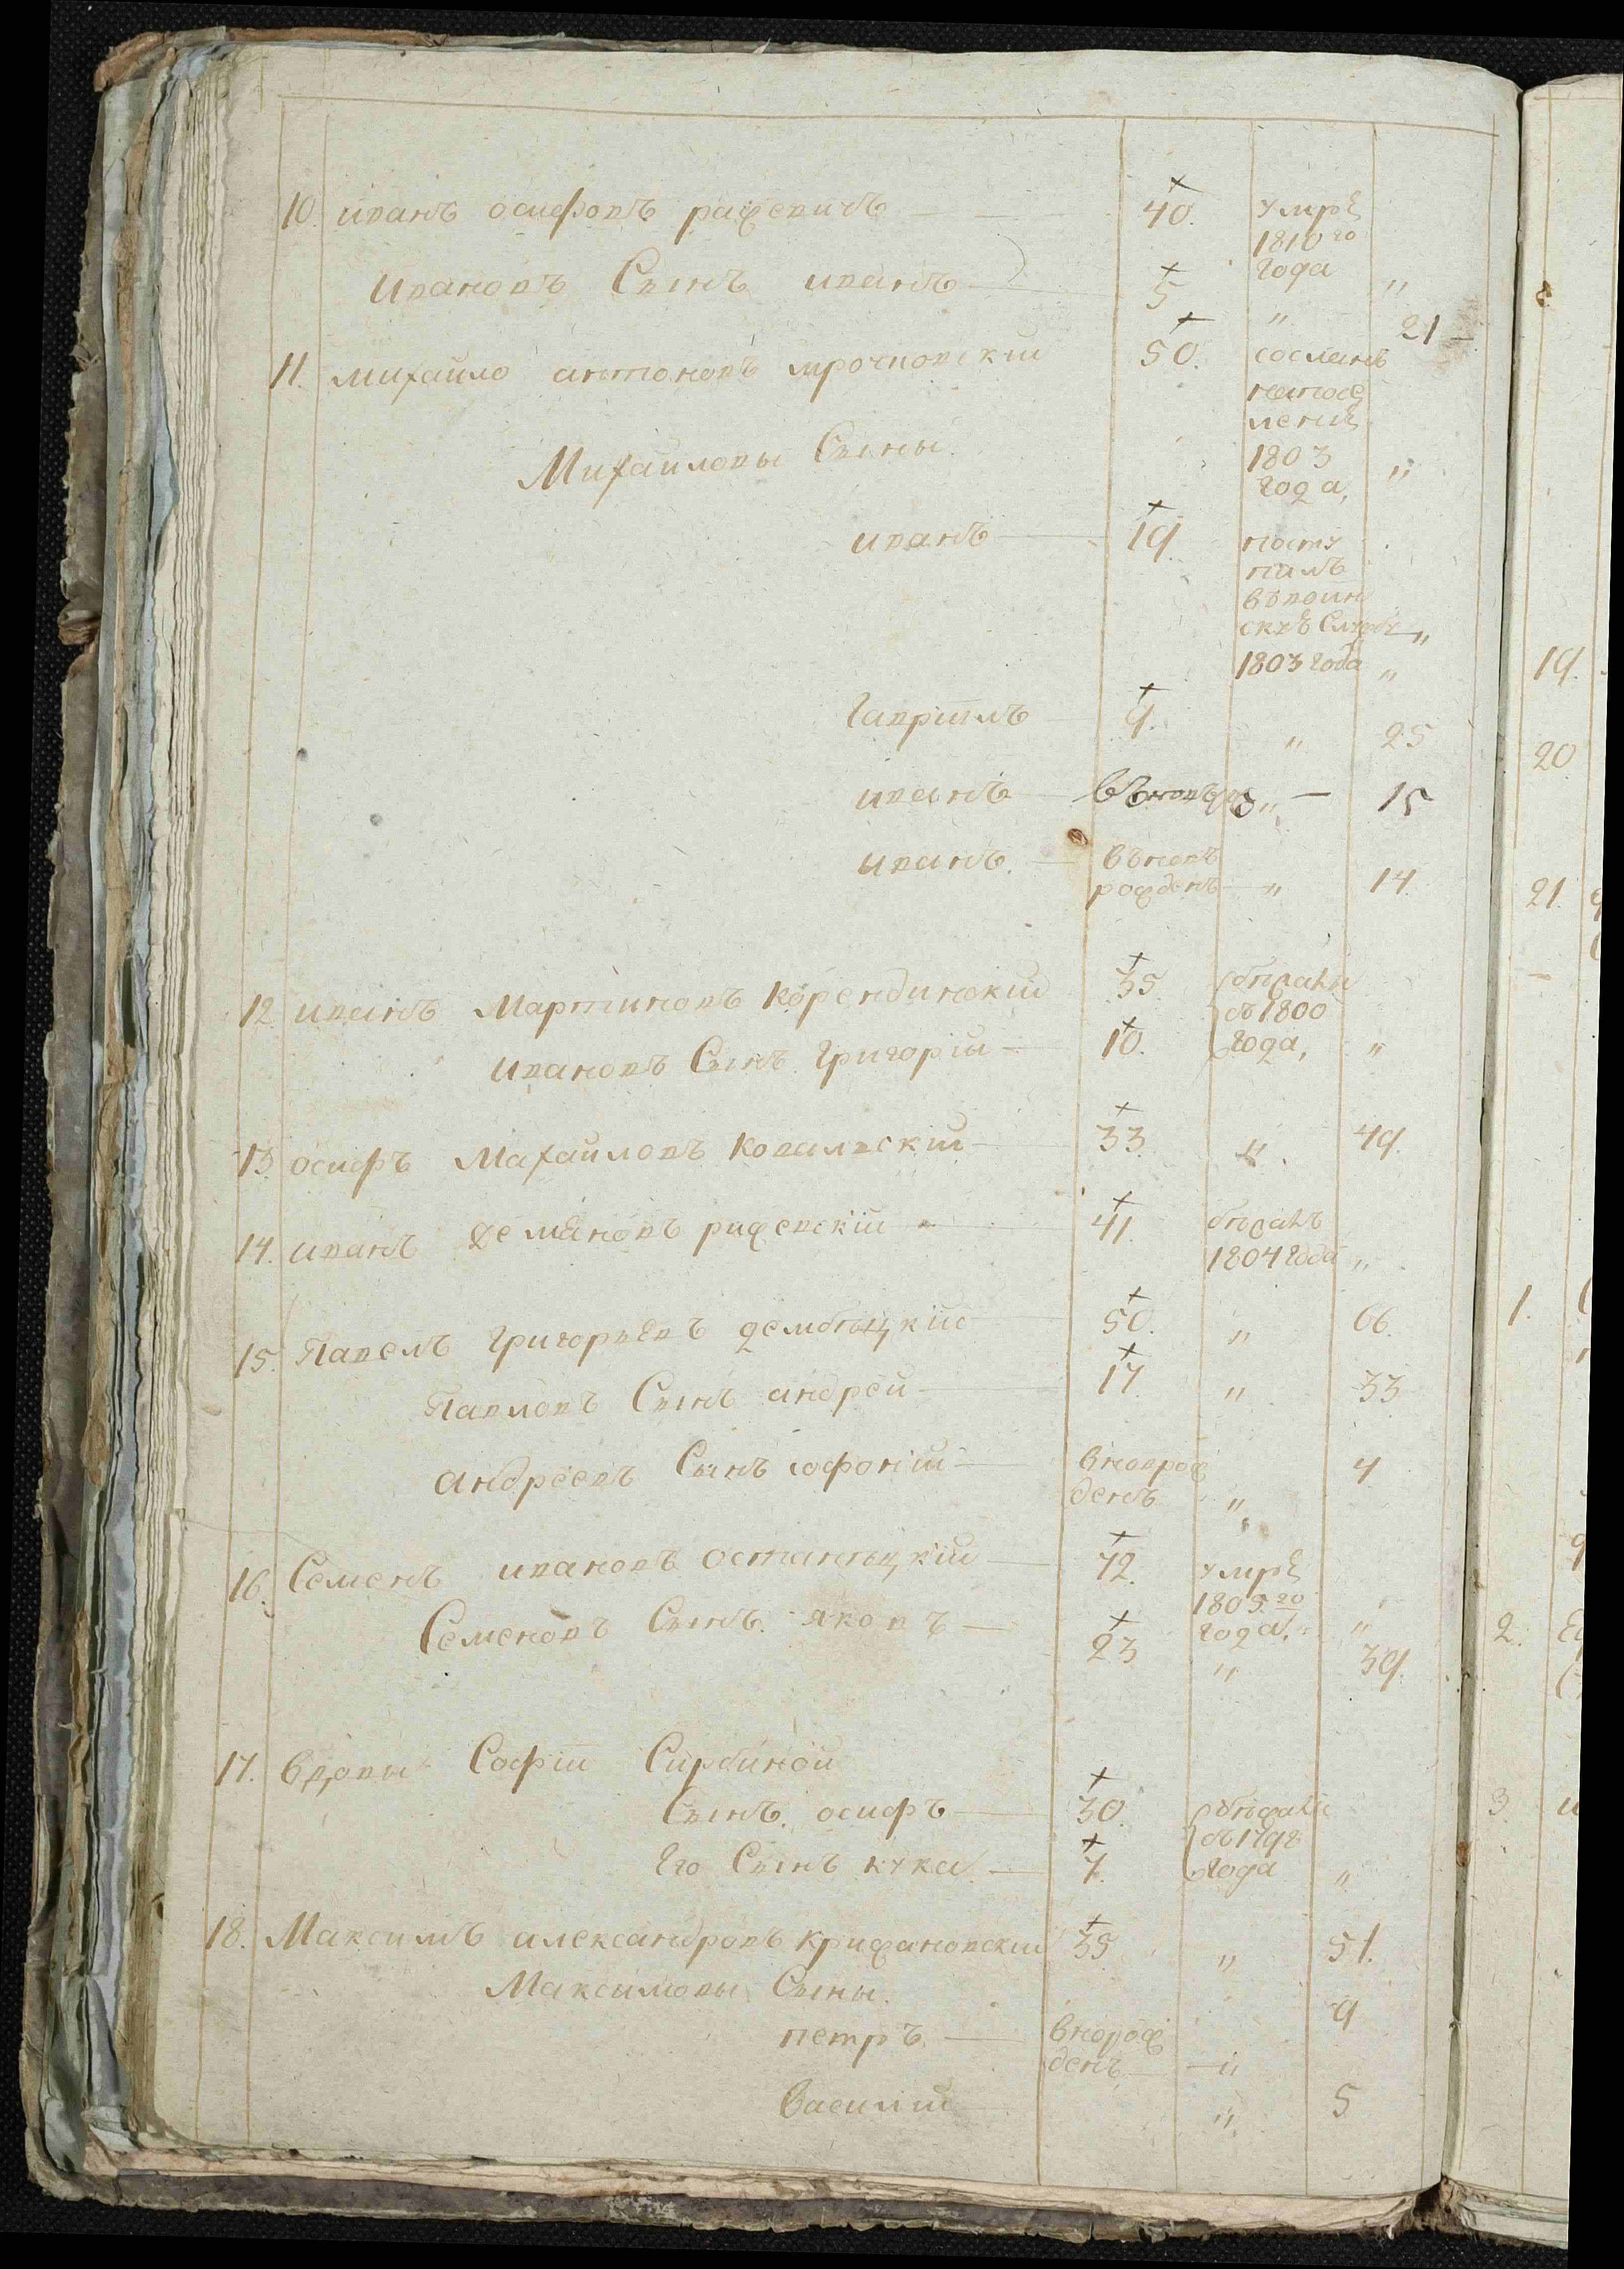 10. иванъ осифовъ ражевичъ — — 40. умре
1810го
года "
Ивановъ Сынъ иванъ — 5 " 21 —
11. михаило антоновъ мрочковский 50. сосланъ
напосе
ление
1803
года, "
Михаиловы Сыны.
иванъ — 19. посту
пилъ
въвоин
скуъ Службу "
1803 года "
Гавриилъ — 9. " 25
иванъ — " — 15
иванъ. — въновъ
рожденъ — " 14
12 иванъ Мартиновъ Корендинский 35 бѣжали
въ 1800
года, "
Ивановъ Сынъ Григорій — 10.
13. осифъ Махаиловъ Ковалвский — 33. " 49.
14. иванъ демяновъ рижевскій — 41. бѣжалъ
1804 года "
15. Павелъ Григорьевъ дембѣцкій 50. " 66.
Павловъ Сынъ андрей — 17. " 33
андреевъ Сынъ іофоній — вновроже
денъ " 4
16. Семенъ ивановъ останѣцкій — 72. умре
1805.го
года. "
Семеновъ Сынъ яковъ — 23 " 39.
17. вдовы Софіи Сирбиной
Сынъ осифъ — 30. бѣжали
въ 179
года "
Его Сынъ лука — 7.
18. Максимъ александровъ крижановский 35 " 51.
Максимовы Сыны.
петръ — внорож
денъ — " 9
василій " 5
19.
20
21.
1.
2.
3.